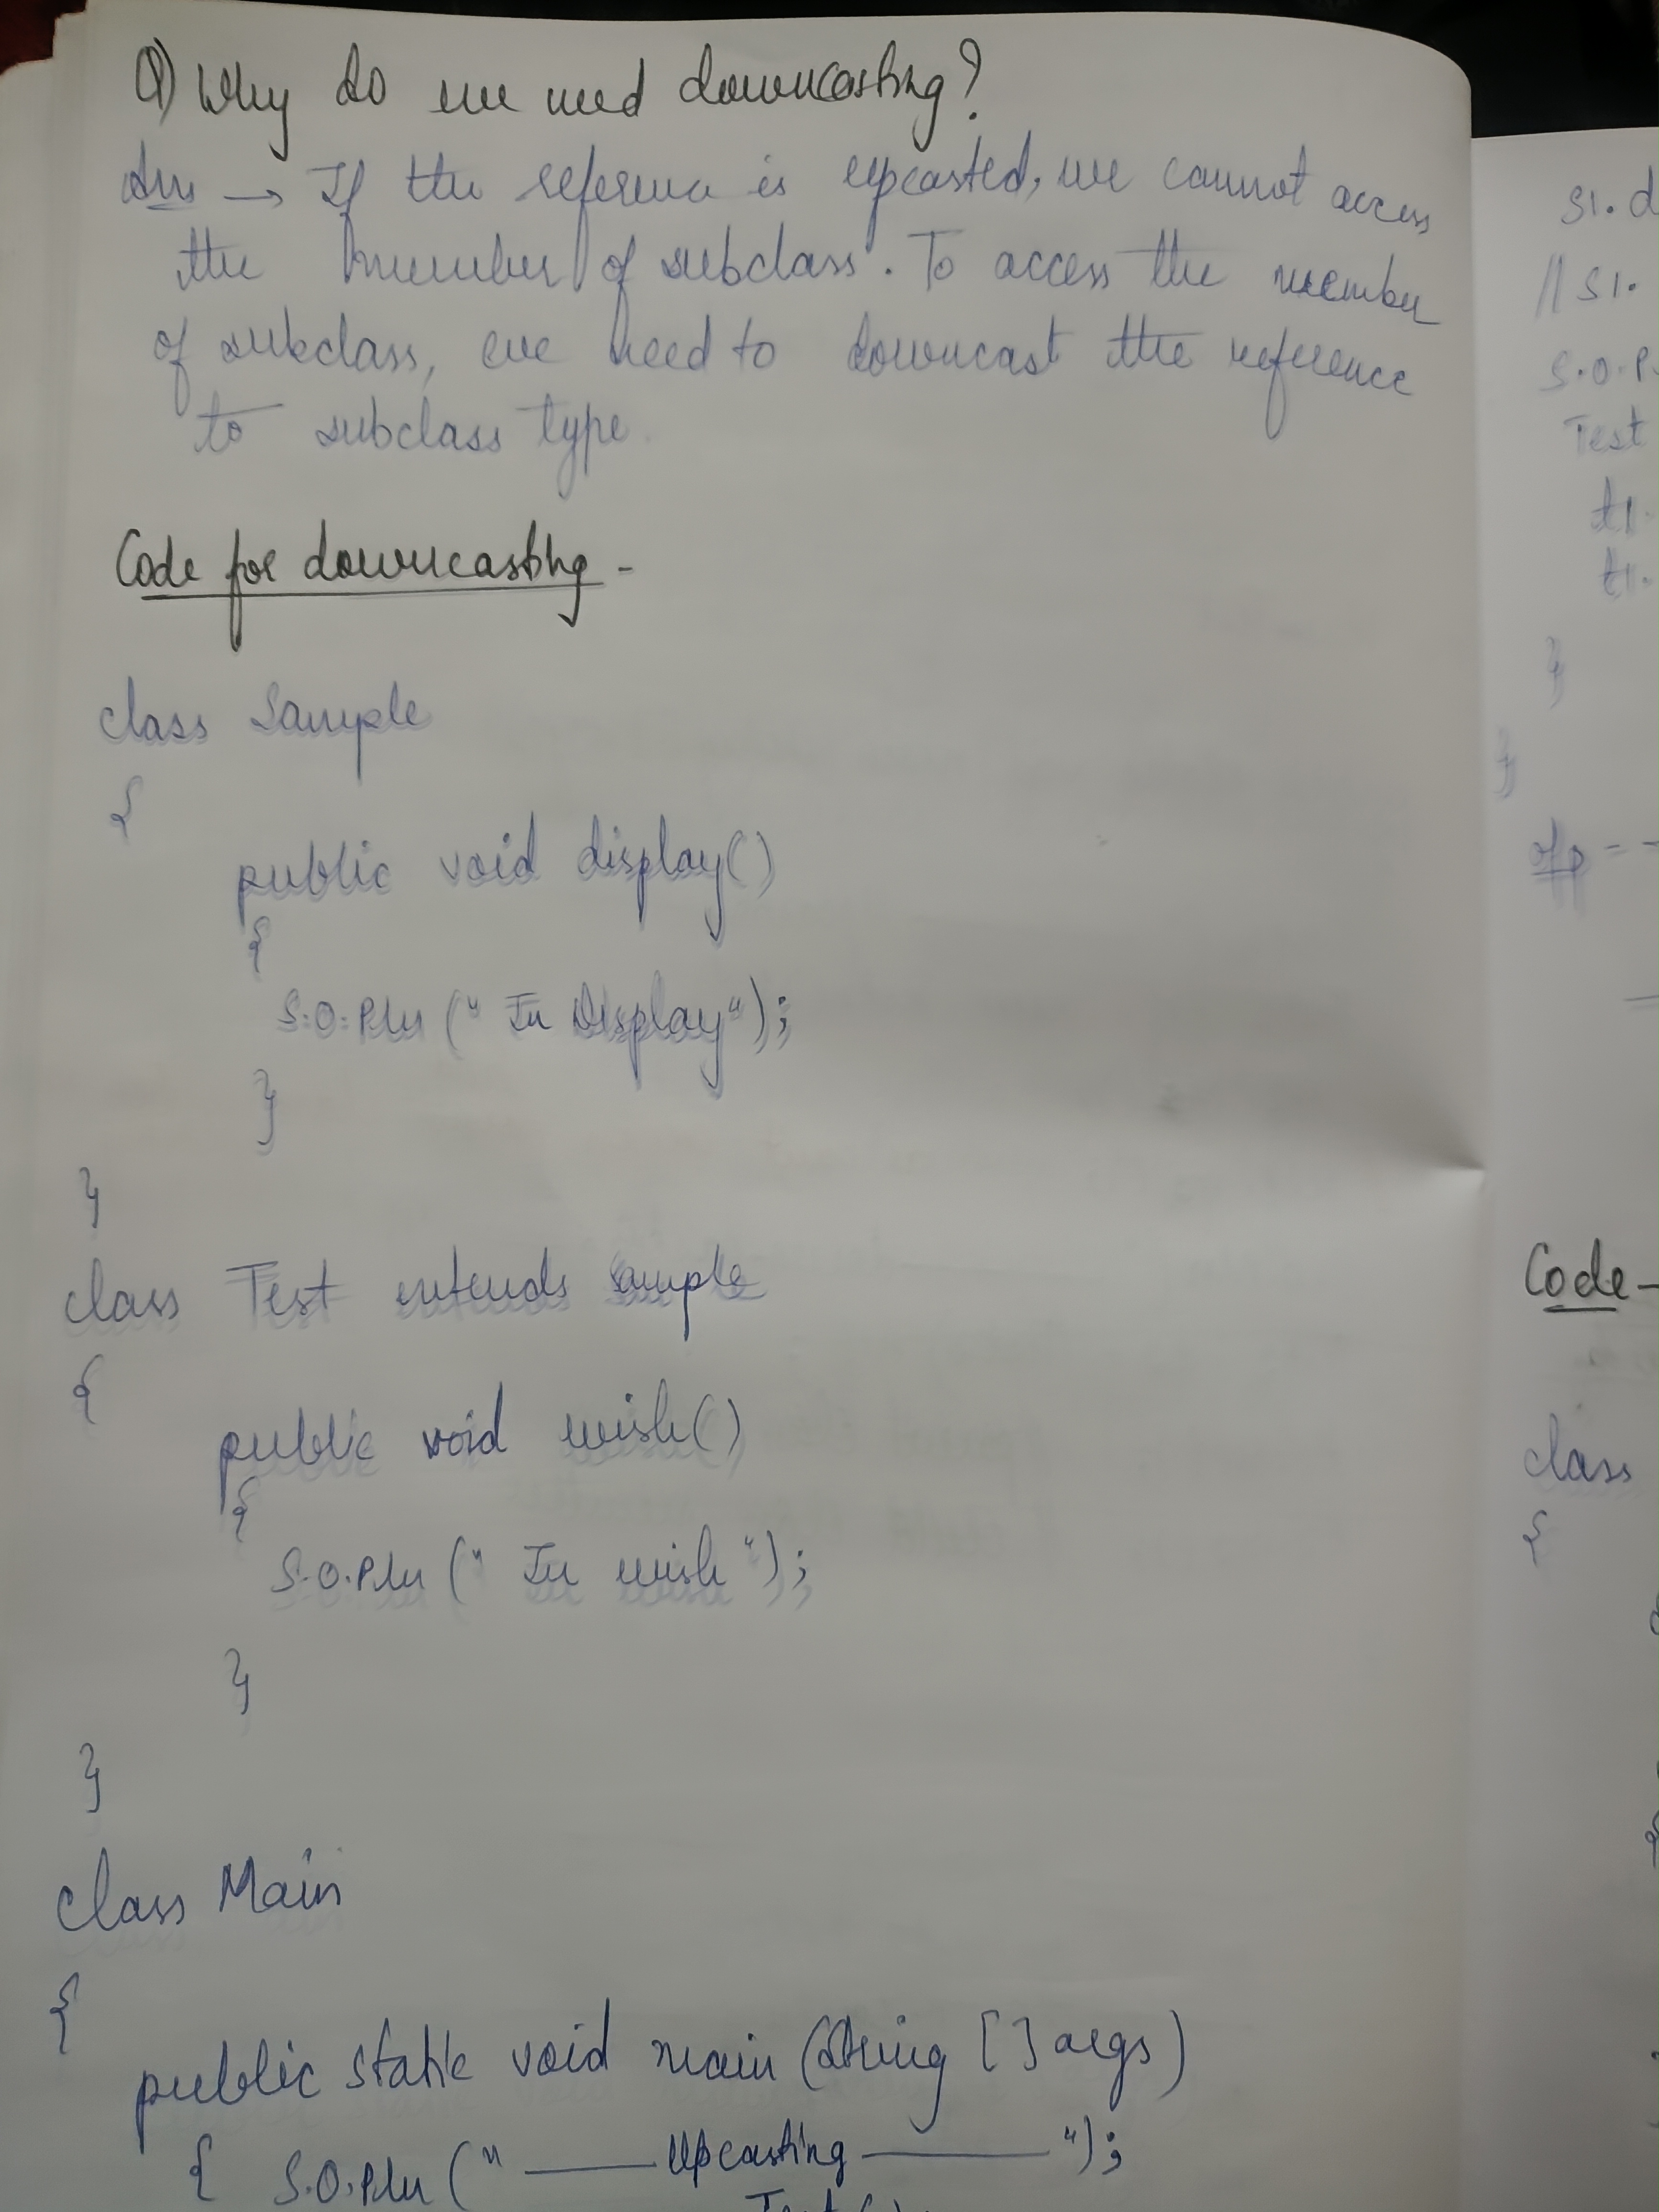 Q) Why do we need downcasting?
Ans → If the reference is upcasted, we cannot access
the member of subclass. To access the member
of subclass, we need to downcast the reference
to subclass type.
Code for downcasting -
class Sample
{
public void display()
{
S.O.Pln (" In Display");
}
}
class Test extends sample
{
public void wish()
{
S.O.Pln (" In wish ");
}
}
class Main
{
public static void main (String [] args)
{ S.O.Pln (" —— Upcasting —— ");
Test();
s1. d
// s1.
S.O.P
Test
t1.
t1.
}
}
o/p = -
Code -
class
{